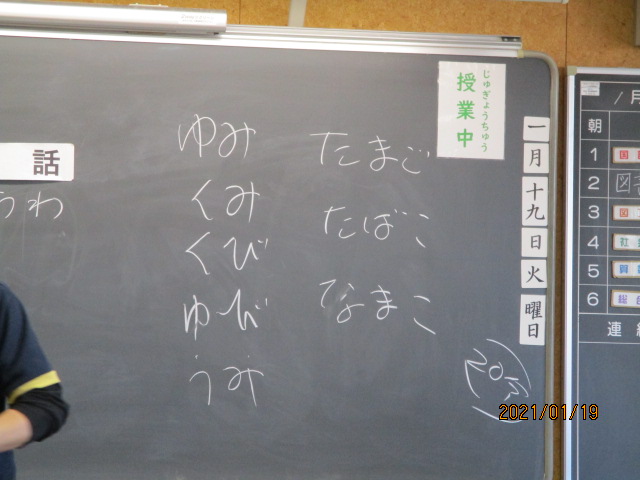 話
うわ
ゆみ
くみ
くび
ゆび
うみ
たまご
たばこ
なまこ
じゅぎょうちゅう
授業中
一月十九日火曜日
/月
朝
1 国
2 図書
3 国
4 社
5 算
6 総合
連絡
2021/01/19